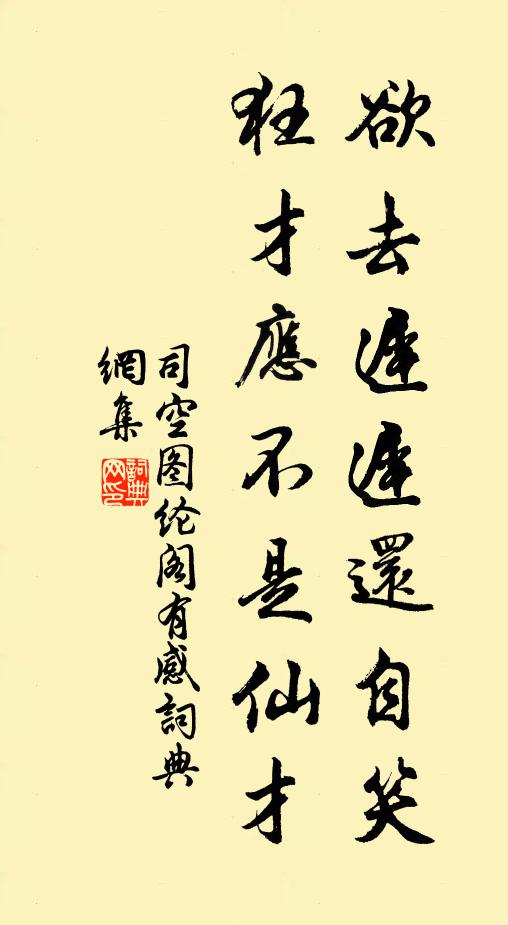 欲去遲遲還自笑
狂才應不是仙才
司空图纶阁有感詞典
網集
詞典
网印